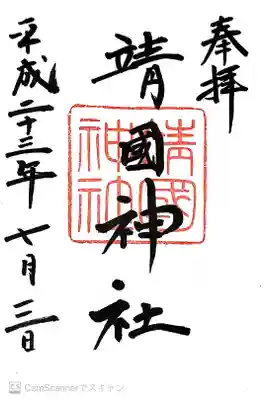 奉拝
靖國神社
靖國
神社
平成二十三年七月三日
CS CamScannerでスキャン